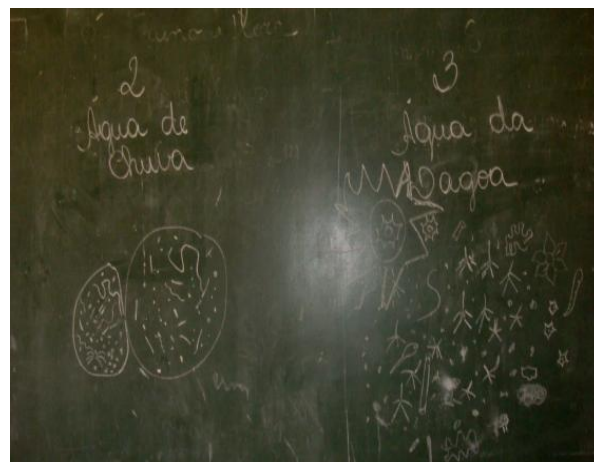 2
Água de
Chuva
3
Água da
Lagoa